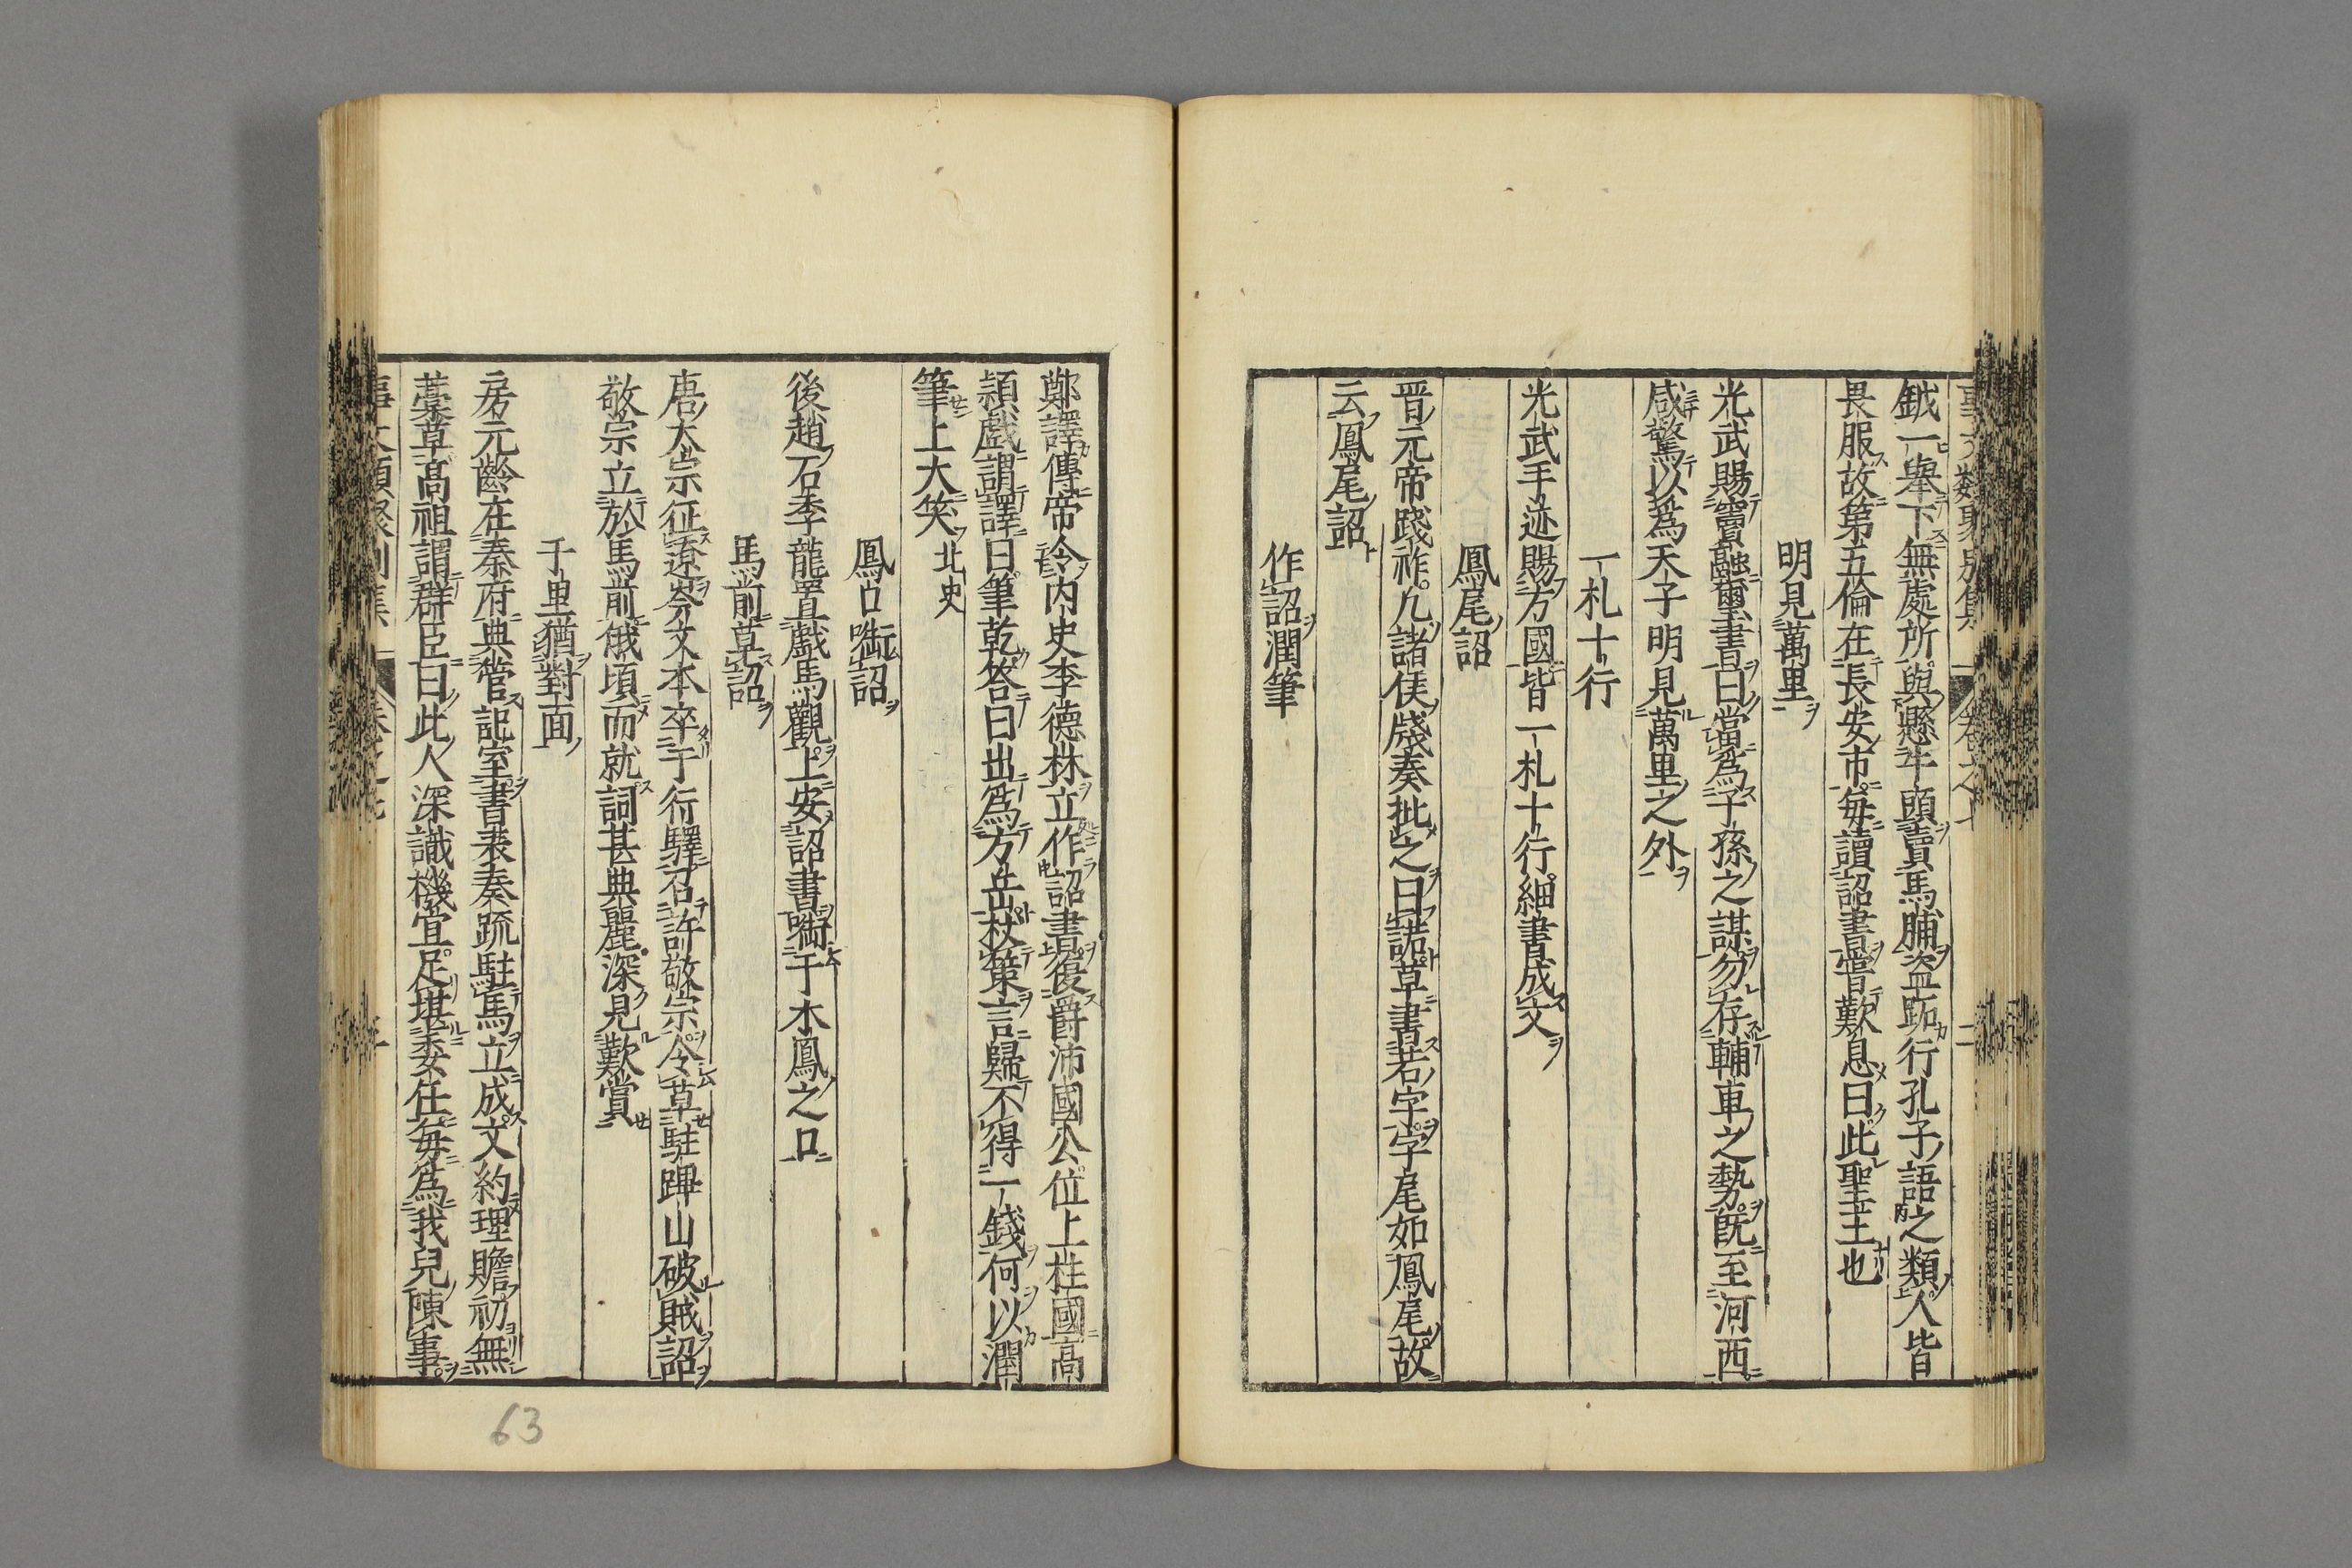 鉞一舉下無處所與懸牛頭賣馬脯盜跖行孔子語之類人皆
畏服故第五倫在長安市毎讀詔書嘗歎息曰此聖主也
明見萬里
光武賜竇融璽書曰當爲子孫之謀勿存輔車之勢既至河西
咸驚以爲天子明見萬里之外
一札十行
光武手迹賜方國皆一札十行細書成文
鳳尾詔
晋元帝踐祚凡諸侯牋奏批之曰諾草書若字字尾如鳳尾故
云鳳尾詔
作詔潤筆
鄭譯傳帝令内史李德林立作詔書復爵沛國公位上柱國高
頴戲謂譯曰筆乾答曰出爲方岳杖策言歸不得一錢何以潤
筆上大笑北史
鳳口啣詔
後趙石季龍置戲馬觀上安詔書啣于木鳳之口
馬前草詔
唐太宗征遼岑文本卒于行驛召許敬宗令草駐蹕山破賊詔
敬宗立於馬前俄頃而就詞甚典麗深見歎賞
千里猶對面
房元齡在秦府典管記室書表奏䟽駐馬立成文約理贍初無
藁草高祖謂群臣曰此人深識機宜足堪委任毎爲我兒陳事
63